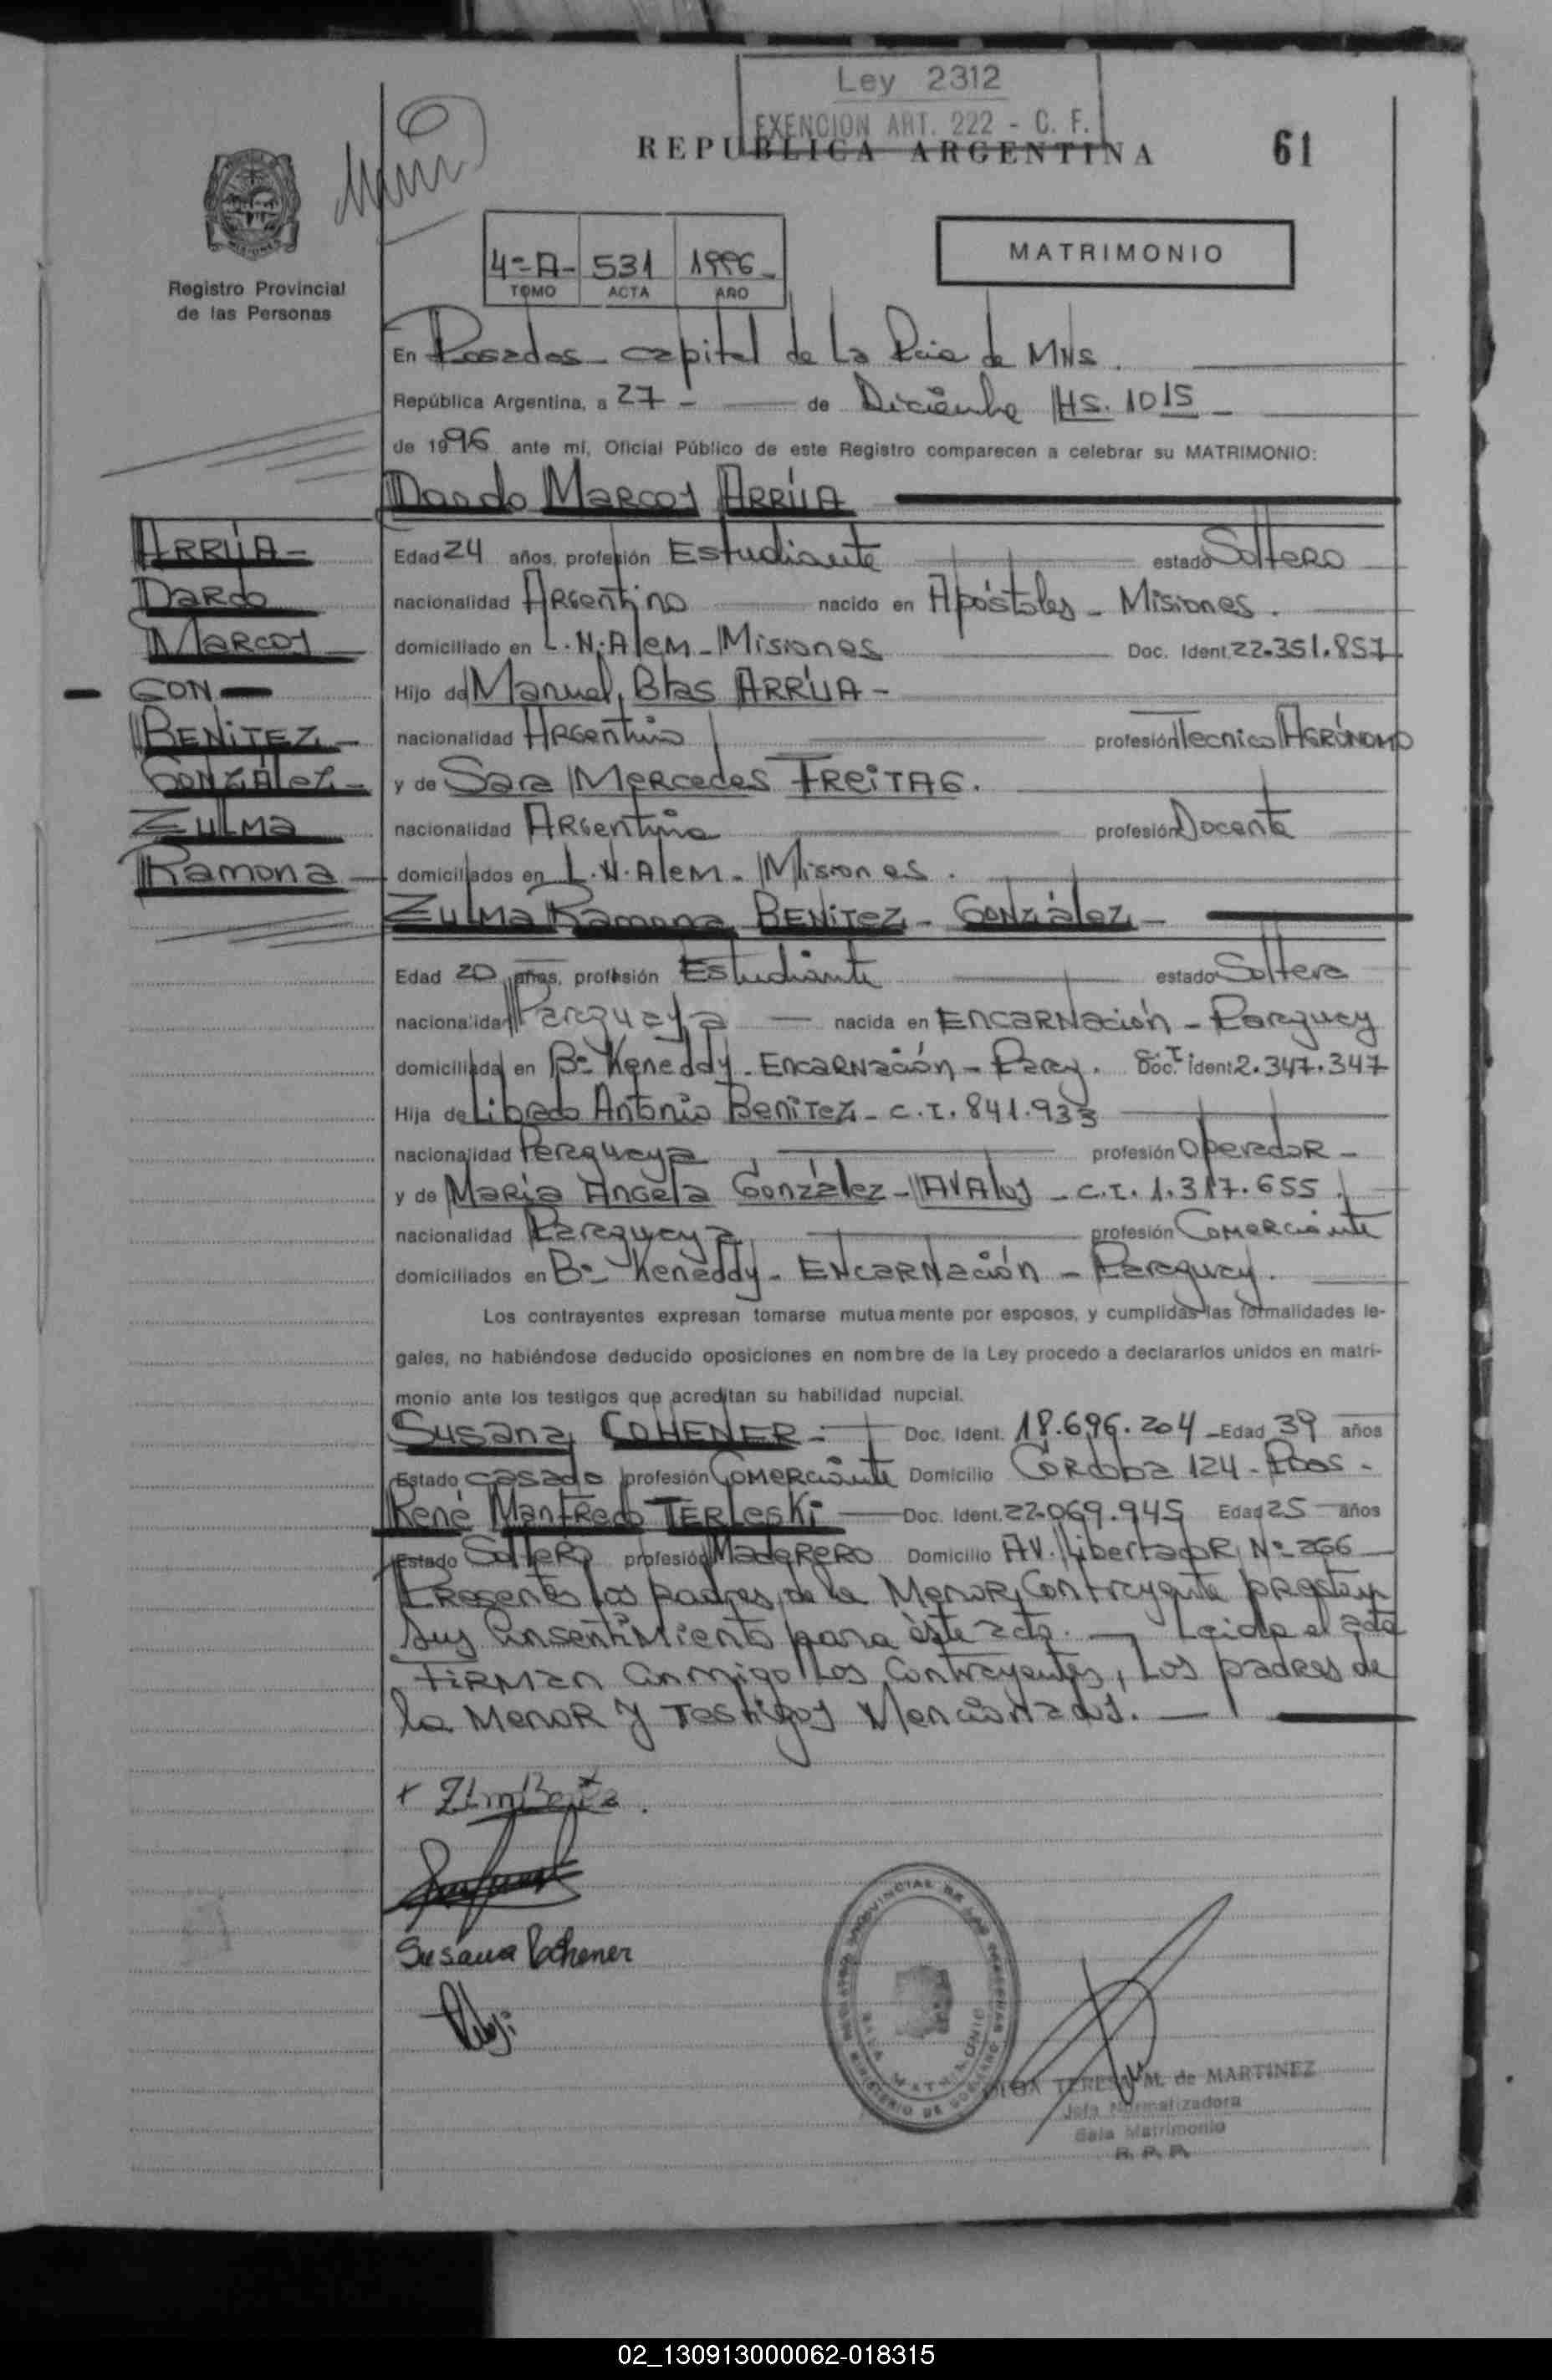 Ley 2312
EXENCION ART. 222 - C. F.
REPUBLICA ARGENTINA
61
MISIONES
Registro Provincial
de las Personas
4º-A- 531 1996-
TOMO ACTA AÑO
MATRIMONIO
En Posadas - capital de La Pcia de MNS.
República Argentina, a 27 - de Diciembre HS. 10 15 -
de 1996 ante mí, Oficial Público de este Registro comparecen a celebrar su MATRIMONIO:
Dardo Marcos ARRÚA
ARRÚA -
Dardo
Marcos
- CON -
BENiTEZ -
GONZÁlez -
Zulma
Ramona -
Edad 24 años, profesión Estudiante estado Soltero
nacionalidad Argentino nacido en Apóstoles - Misiones.
domiciliado en L.N.Alem - Misiones Doc. Ident. 22.351.857
Hijo de Manuel Blas ARRÚA -
nacionalidad Argentino profesión Tecnico AGRÓNOMO
y de Sara Mercedes FREiTAS.
nacionalidad Argentina profesión Docente
domiciliados en L.N.Alem - Misiones.
Zulma Ramona BENiTez - GONZález -
Edad 20 años, profesión Estudiante estado Soltera
nacionalidad Paraguaya - nacida en ENCARNación - Paraguay
domiciliada en Bº Keneddy - ENCARNación - Parag. Doc. Ident. C.I. 2.347.347
Hija de Librado Antonio BeniTez - C.I. 841.933
nacionalidad Paraguaya profesión Operador -
y de María Angela González - AVAlos - C.I. 1.317.655.
nacionalidad Paraguaya profesión Comerciante
domiciliados en Bº Keneddy - ENCARNación - Paraguay.
Los contrayentes expresan tomarse mutuamente por esposos, y cumplidas las formalidades le-
gales, no habiéndose deducido oposiciones en nombre de la Ley procedo a declararlos unidos en matri-
monio ante los testigos que acreditan su habilidad nupcial.
Susana COHENER - Doc. Ident. 18.696.204 - Edad 39 años
Estado casada profesión Comerciante Domicilio Córdoba 124 - Pdas -
René Manfredo TERlesKi - Doc. Ident. 22.069.945 Edad 25 años
Estado Soltero profesión Maderero Domicilio AV. Libertador Nº 266
Presentes los padres de la Menor Contrayente prestan
sus Consentimiento para éste acto. - Leida el acta
FiRMAN conmigo Los Contrayentes, Los padres de
la Menor y Testigos Mencionados. -
Susana Cohener
REGISTRO PROVINCIAL DE LAS PERSONAS
SALA MATRIMONIO
MINISTERIO DE GOBIERNO
OLGA TERESA M. de MARTINEZ
Jefa Normalizadora
Sala Matrimonio
R. P. P.
02_130913000062-018315